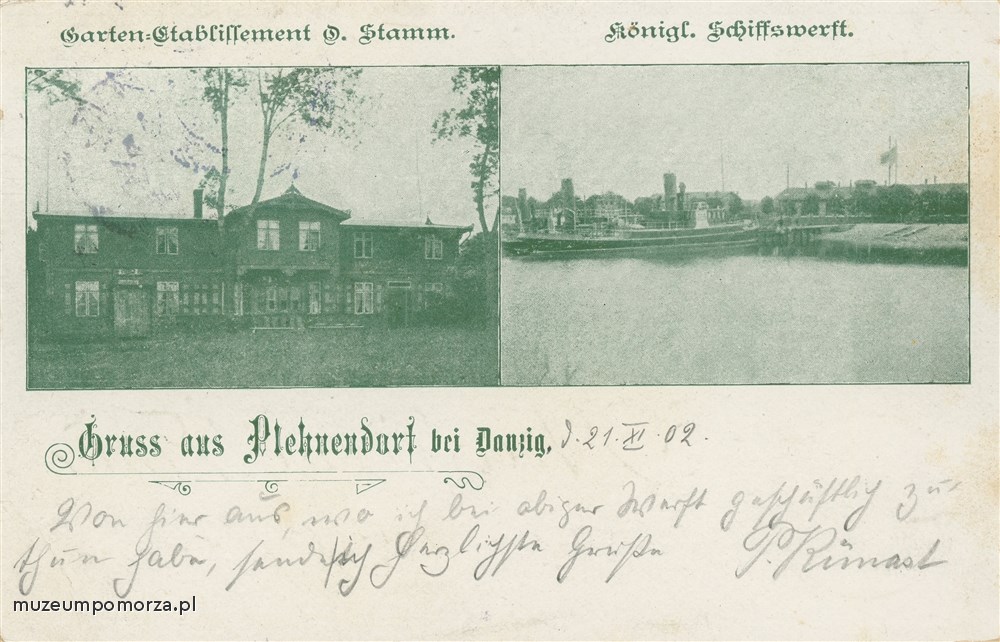 Garten-Etablissement O. Stamm.
Königl. Schiffswerft.
Gruss aus Plehnendorf bei Danzig, d. 21. XI. 02.
Von hier aus, wo ich bei obiger Werft geschäftlich zu
thun habe, sende ich herzlichste Grüße P. Künast
muzeumpomorza.pl